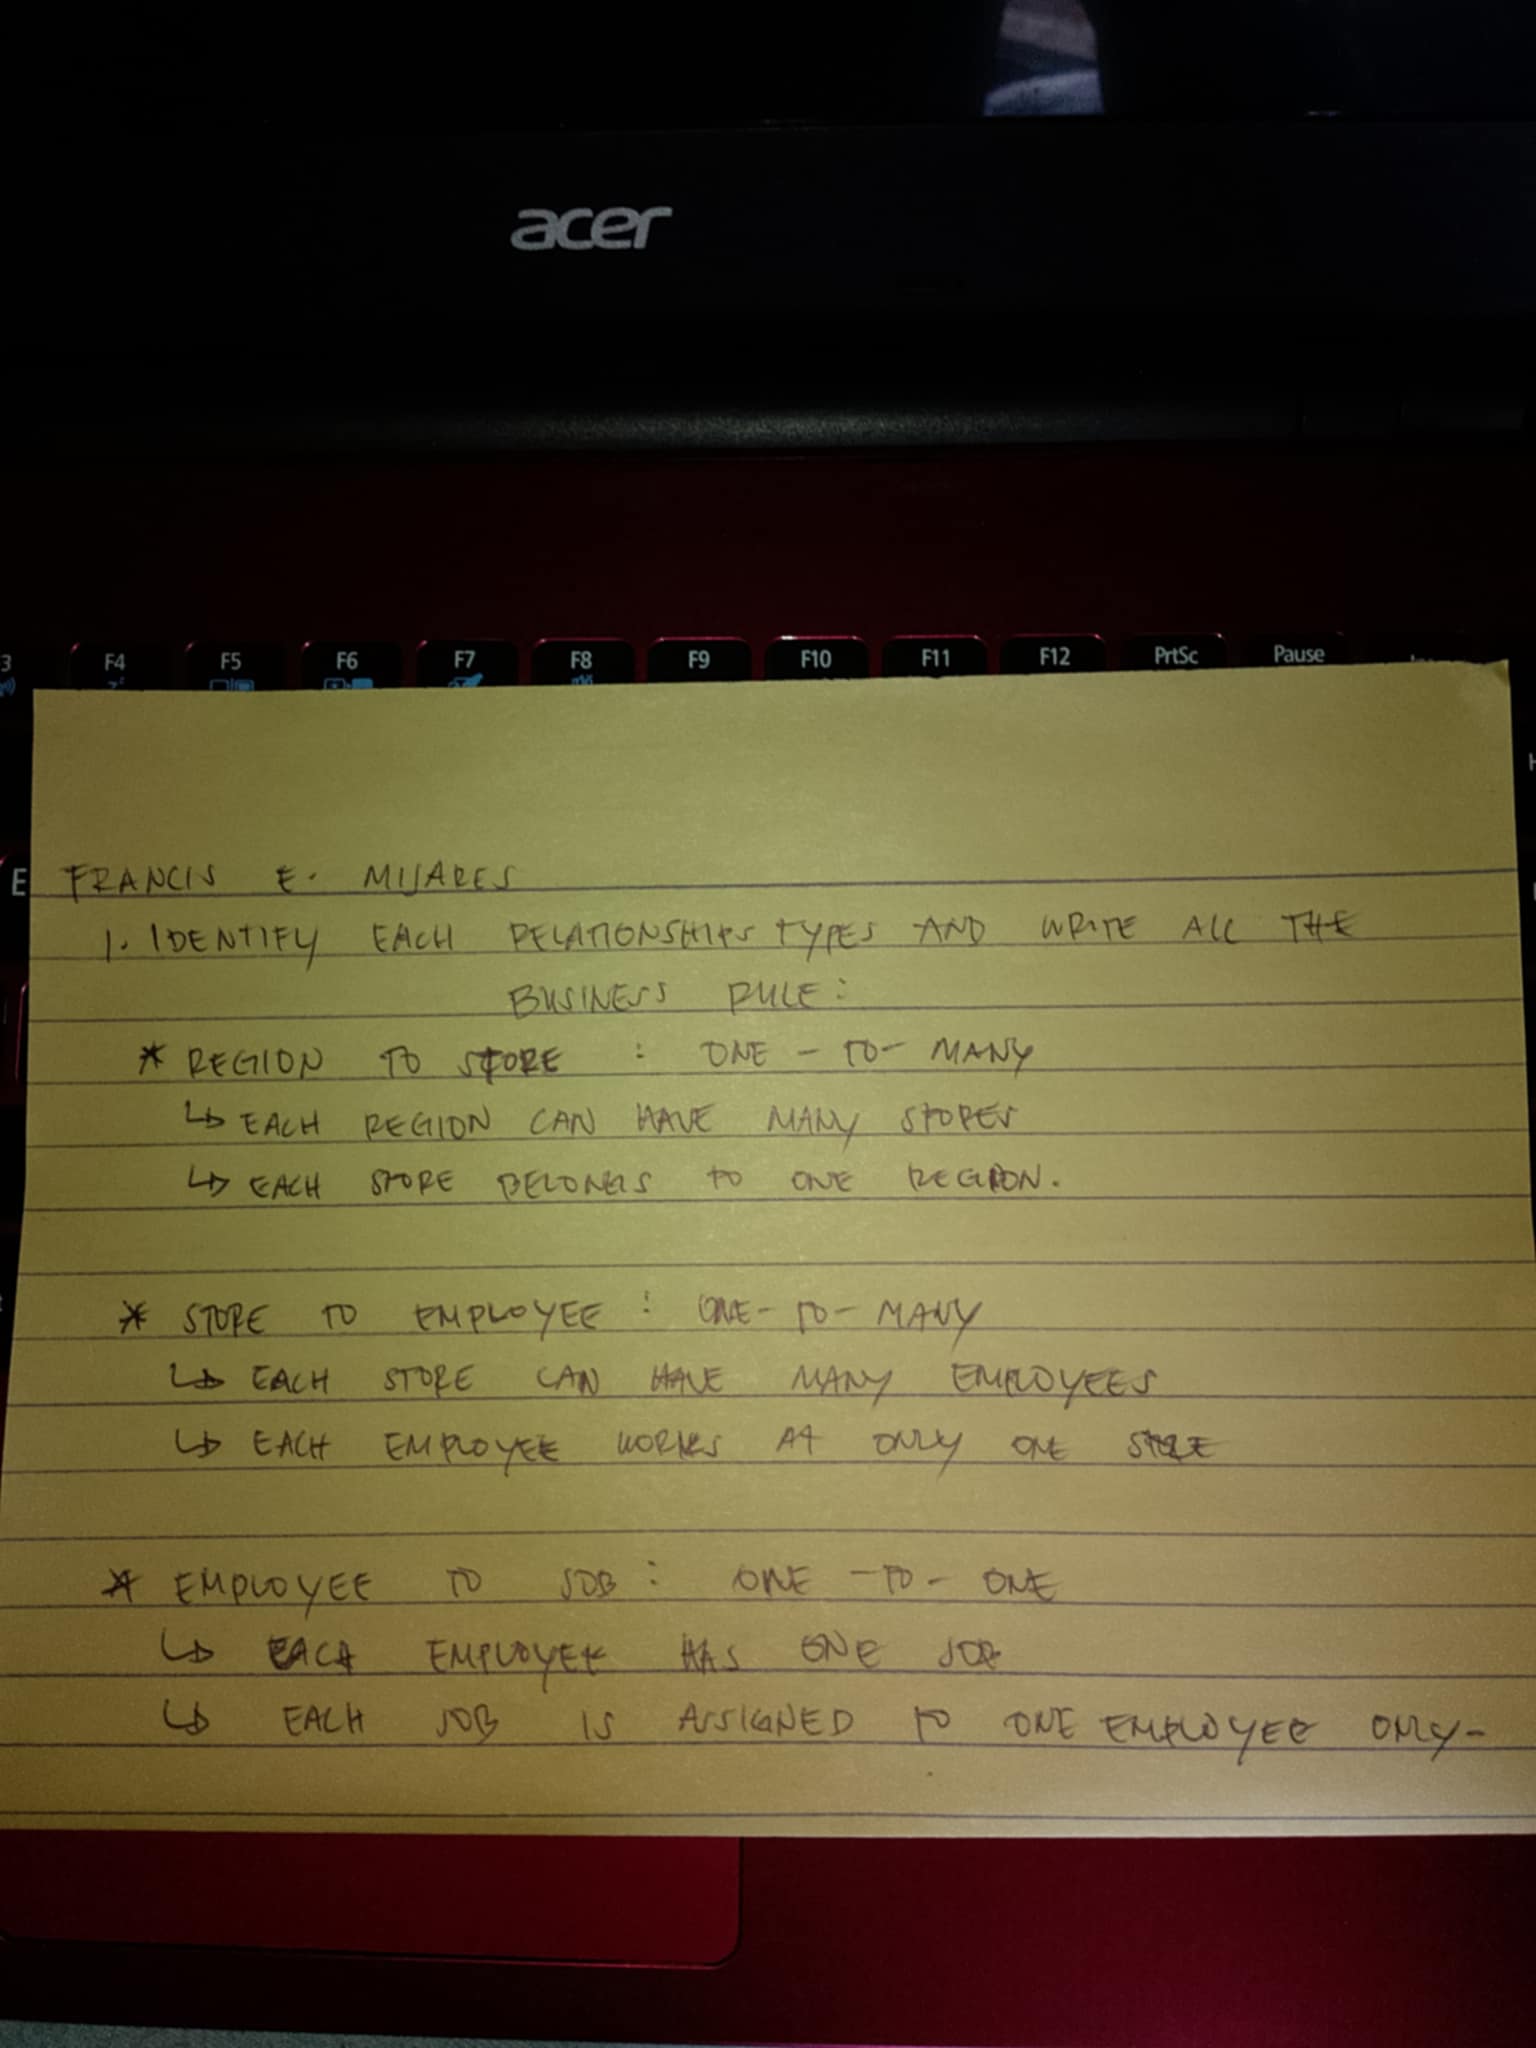 acer
F4 F5 F6 F7 F8 F9 F10 F11 F12 PrtSc Pause
E
FRANCIS E. MIJARES
1. IDENTIFY EACH RELATIONSHIPS TYPES AND WRITE ALL THE
BUSINESS RULE:
* REGION TO STORE : ONE - TO - MANY
↳ EACH REGION CAN HAVE MANY STORES
↳ EACH STORE BELONGS TO ONE REGION.
* STORE TO EMPLOYEE : ONE - TO - MANY
↳ EACH STORE CAN HAVE MANY EMPLOYEES
↳ EACH EMPLOYEE WORKS AT ONLY ONE STORE
* EMPLOYEE TO JOB : ONE - TO - ONE
↳ EACH EMPLOYEE HAS ONE JOB
↳ EACH JOB IS ASSIGNED TO ONE EMPLOYEE ONLY-